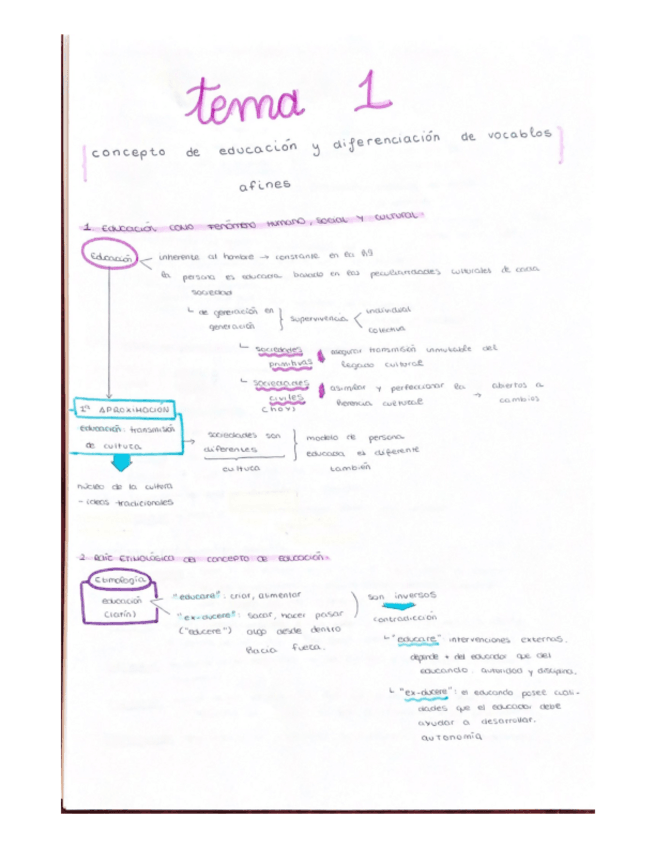 tema 1
concepto de educación y diferenciación de vocablos
afines
1. Educación como fenómeno humano, social y cultural
Educación
inherente al hombre → constante en la Hª
la persona es educada basado en las peculiaridades culturales de cada
sociedad
↳ de generación en
generación
supervivencia
individual
colectiva
↳ sociedades
primitivas
asegurar transmisión inmutable del
legado cultural
↳ sociedades
civiles
(hoy)
asimilar y perfeccionar la
herencia cultural
→ abiertos a
cambios
1ª APROXIMACIÓN
educación: transmisión
de cultura
→ sociedades son
diferentes
cultura
modelo de persona
educada es diferente
también
núcleo de la cultura
- ideas tradicionales
2. Raíz Etimológica del concepto de Educación
Etimología
educación
(latín)
"educare": criar, alimentar
"ex-ducere": sacar, hacer pasar
("educere") algo desde dentro
hacia fuera.
son inversos
contradicción
↳ "educare" intervenciones externas.
depende + del educador que del
educando. autoridad y disciplina.
↳ "ex-ducere": el educando posee cuali-
dades que el educador debe
ayudar a desarrollar.
autonomía